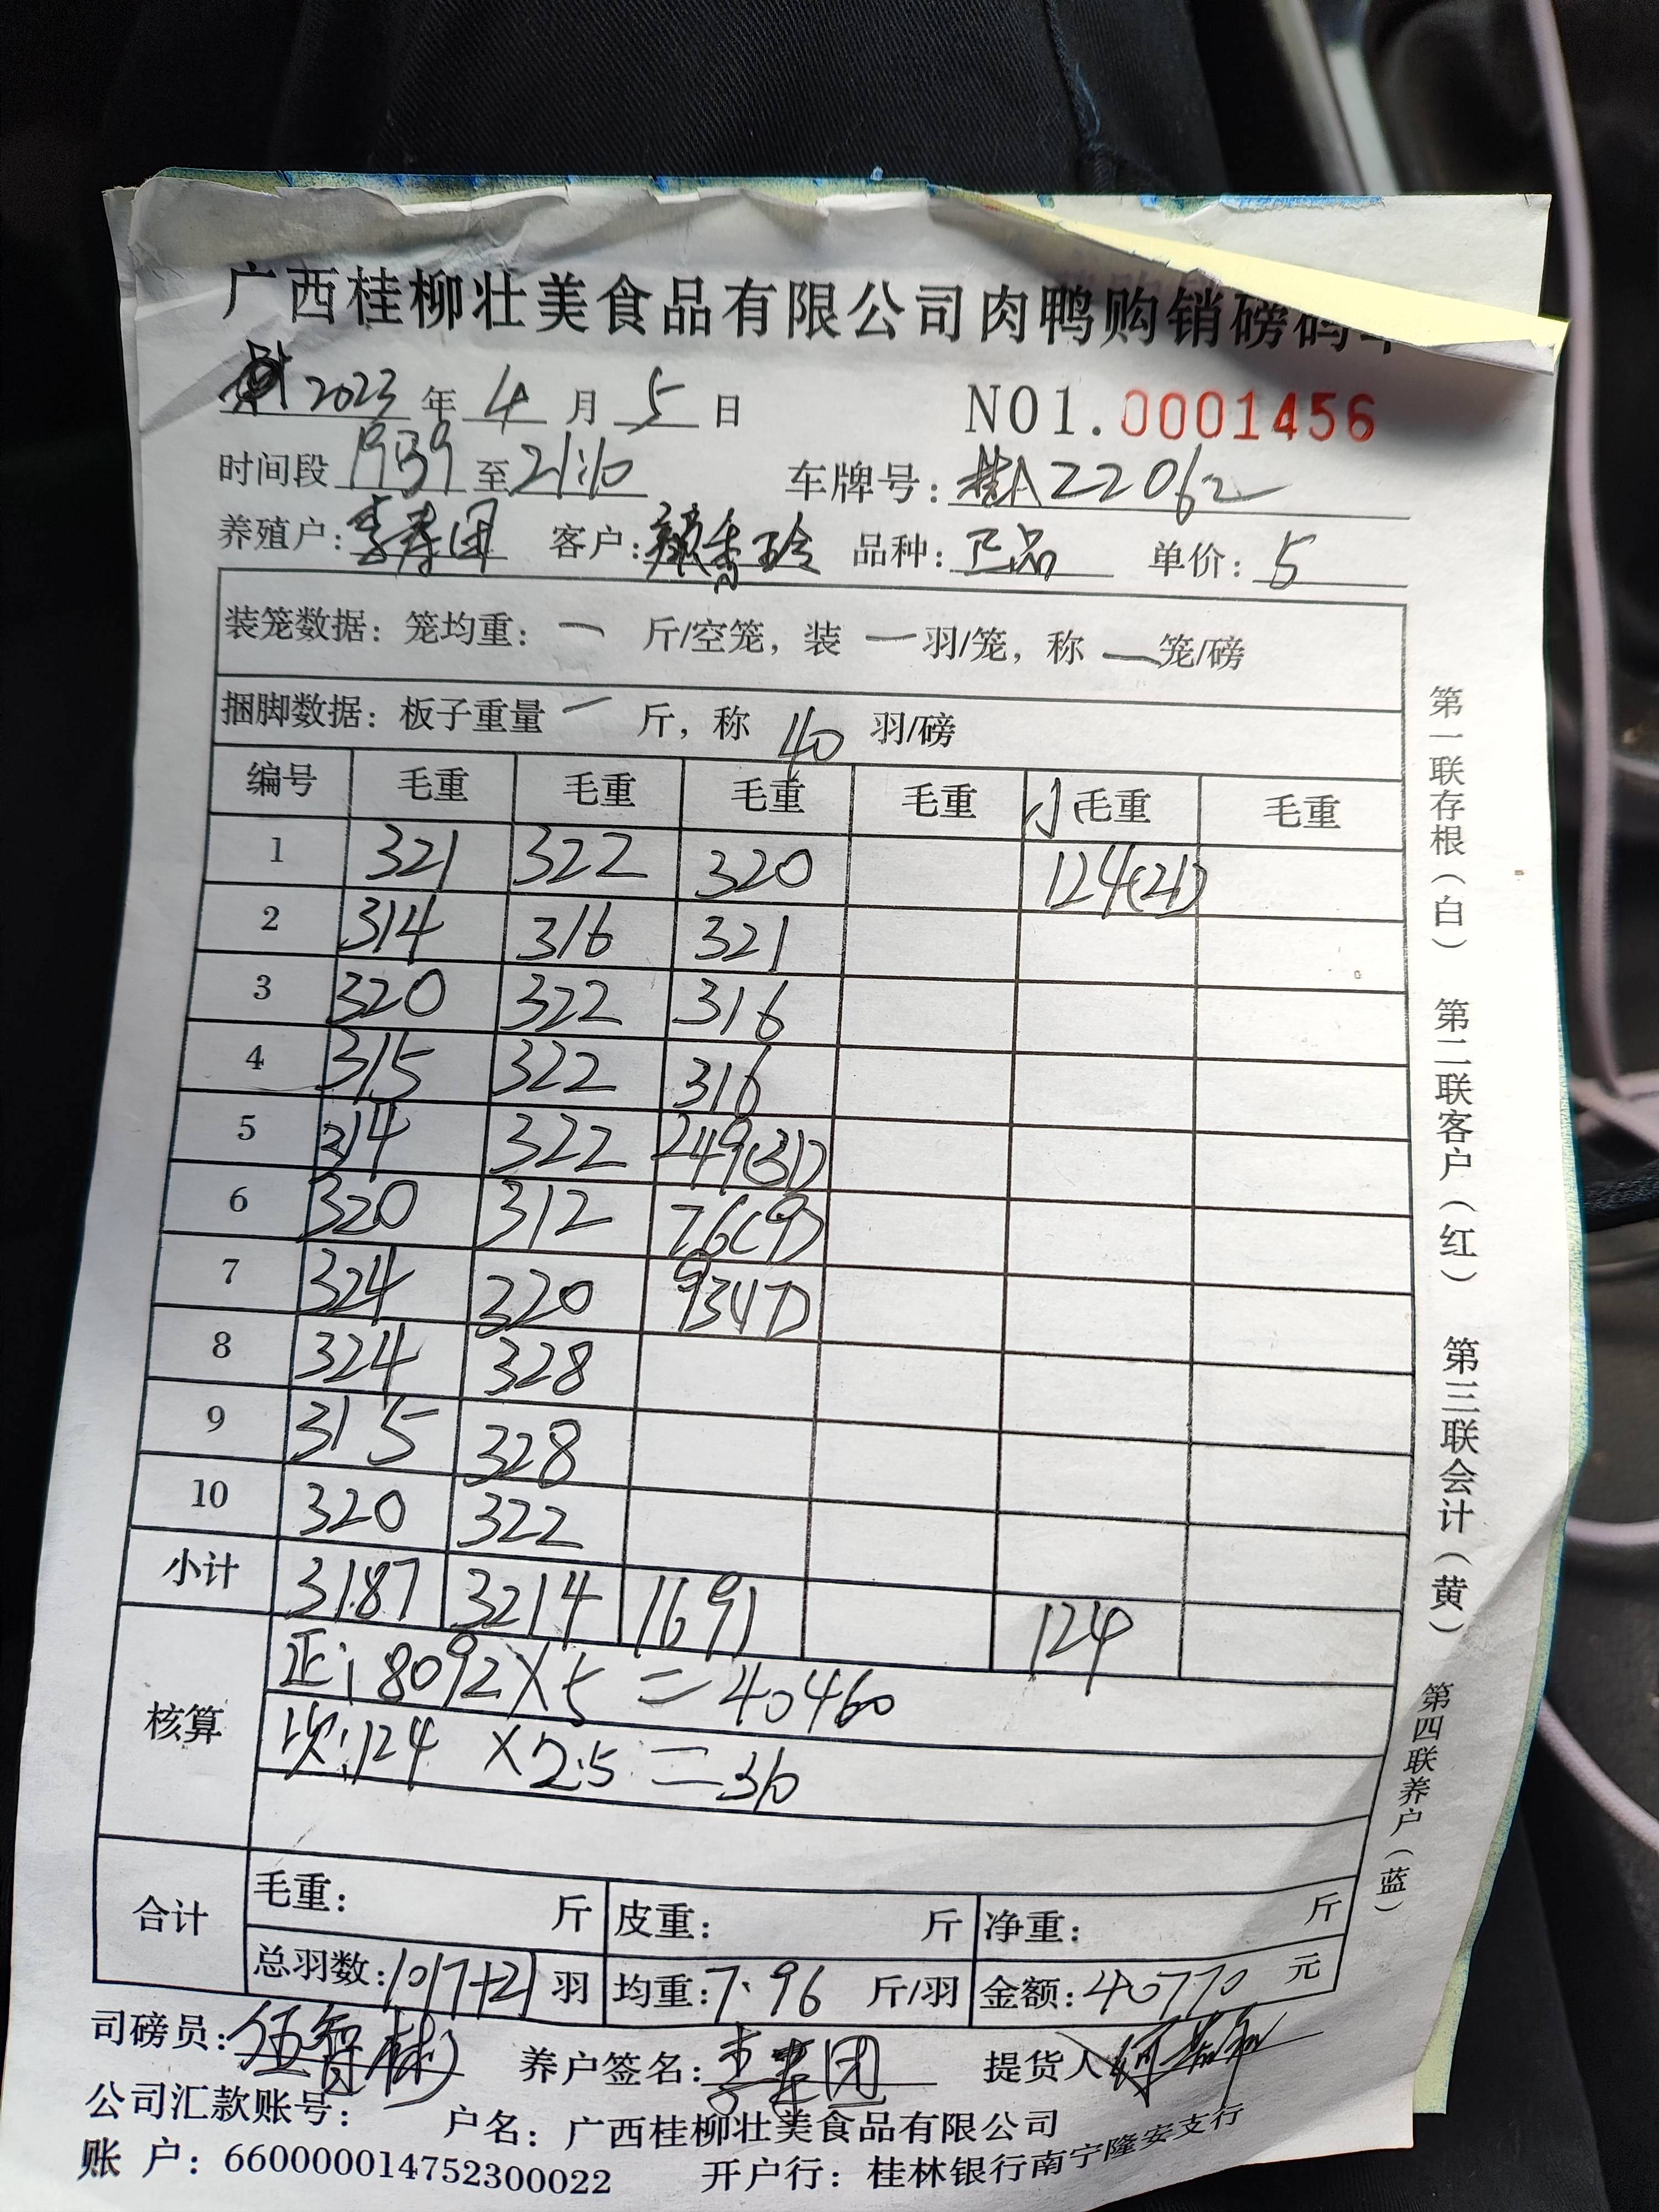 广西桂柳壮美食品有限公司肉鸭购销磅码单
2023 年 4 月 5 日 NO1.0001456
时间段 1939 至 21:10 车牌号: 桂A22062
养殖户: 李寿团 客户: 颜香玲 品种: 正品 单价: 5
装笼数据: 笼均重: 一 斤/空笼, 装 一 羽/笼, 称 一 笼/磅
捆脚数据: 板子重量 一 斤, 称 40 羽/磅
编号 毛重 毛重 毛重 毛重 小毛重 毛重
1 321 322 320 124(21)
2 314 316 321
3 320 322 316
4 315 322 316
5 314 322 249(31)
6 320 312 76(9)
7 324 320 93(17)
8 324 328
9 315 328
10 320 322
小计 3187 3214 1691 124
核算
正: 8092×5=40460
次: 124 ×2.5=310
合计
毛重: 斤 皮重: 斤 净重: 斤
总羽数: 1017+21 羽 均重: 7.96 斤/羽 金额: 40770 元
司磅员: 伍智彬 养户签名: 李寿团 提货人
公司汇款账号: 户名: 广西桂柳壮美食品有限公司
账 户: 660000014752300022 开户行: 桂林银行南宁隆安支行
第一联存根(白) 第二联客户(红) 第三联会计(黄) 第四联养户(蓝)